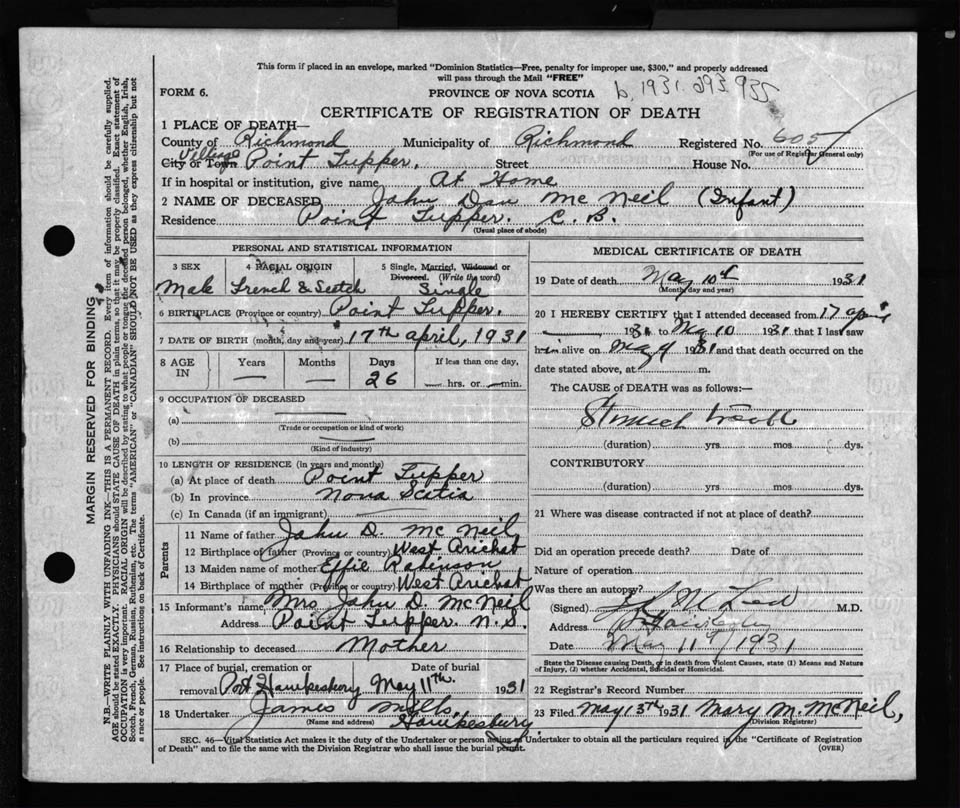 This form if placed in an envelope, marked "Dominion Statistics—Free, penalty for improper use, $300," and properly addressed
will pass through the Mail "FREE"
FORM 6.
PROVINCE OF NOVA SCOTIA
b. 1931. 293.935
CERTIFICATE OF REGISTRATION OF DEATH
1 PLACE OF DEATH—
County of Richmond Municipality of Richmond Registered No. 605
(For use of Registrar General only)
Village
City or Town Point Tupper. Street House No.
If in hospital or institution, give name At Home
2 NAME OF DECEASED John Dan Mc Neil (Infant)
Residence Point Tupper. C. B.
(Usual place of abode)
PERSONAL AND STATISTICAL INFORMATION
3 SEX 4 RACIAL ORIGIN 5 Single, Married, Widowed or Divorced. (Write the word)
Male French & Scotch Single
6 BIRTHPLACE (Province or country) Point Tupper.
7 DATE OF BIRTH (month, day and year) 17th april, 1931
8 AGE IN Years Months Days If less than one day,
— — 26 — hrs. or — min.
9 OCCUPATION OF DECEASED
(a)
(Trade or occupation or kind of work)
(b)
(Kind of industry)
10 LENGTH OF RESIDENCE (in years and months)
(a) At place of death Point Tupper
(b) In province Nova Scotia
(c) In Canada (if an immigrant)
Parents
11 Name of father John D. Mc Neil
12 Birthplace of father (Province or country) West Arichat
13 Maiden name of mother Effie Robinson
14 Birthplace of mother (Province or country) West Arichat
15 Informant's name Mrs John D. McNeil
Address Point Tupper. N. S.
16 Relationship to deceased Mother
17 Place of burial, cremation or Date of burial
removal Port Hawkesbury May 11th. 1931
18 Undertaker James Mills,
(Name and address) Hawkesbury
MEDICAL CERTIFICATE OF DEATH
19 Date of death May 10th 1931
(Month, day and year)
20 I HEREBY CERTIFY that I attended deceased from 17 april
1931 to May 10 1931 that I last saw
him alive on May 9 1931 and that death occurred on the
date stated above, at m.
The CAUSE OF DEATH was as follows:—
Stomach trouble
(duration) yrs. mos. dys.
CONTRIBUTORY
(duration) yrs. mos. dys.
21 Where was disease contracted if not at place of death?
Did an operation precede death? Date of
Nature of operation
Was there an autopsy?
(Signed) M.D.
Address
Date May 11th 1931
State the Disease causing Death, or in death from Violent Causes, state (1) Means and Nature
of Injury, (2) whether Accidental, Suicidal or Homicidal.
22 Registrar's Record Number
23 Filed May 13th 1931 Mary M. McNeil,
(Division Registrar)
SEC. 46—Vital Statistics Act makes it the duty of the Undertaker or person acting as Undertaker to obtain all the particulars required in the "Certificate of Registration
of Death" and to file the same with the Division Registrar who shall issue the burial permit.
(OVER)
MARGIN RESERVED FOR BINDING
N.B.—WRITE PLAINLY WITH UNFADING INK—THIS IS A PERMANENT RECORD. Every item of information should be carefully supplied.
AGE should be stated EXACTLY. PHYSICIANS should STATE CAUSE OF DEATH in plain terms, so that it may be properly classified. Exact statement of
OCCUPATION is very important. RACIAL ORIGIN will be described by stating to what people or tongue the deceased person belonged, whether English, Irish,
Scotch, French, German, Russian, Ruthenian, etc. The terms "AMERICAN" or "CANADIAN" SHOULD NOT BE USED as they express citizenship but not
a race or people. See instructions on back of Certificate.